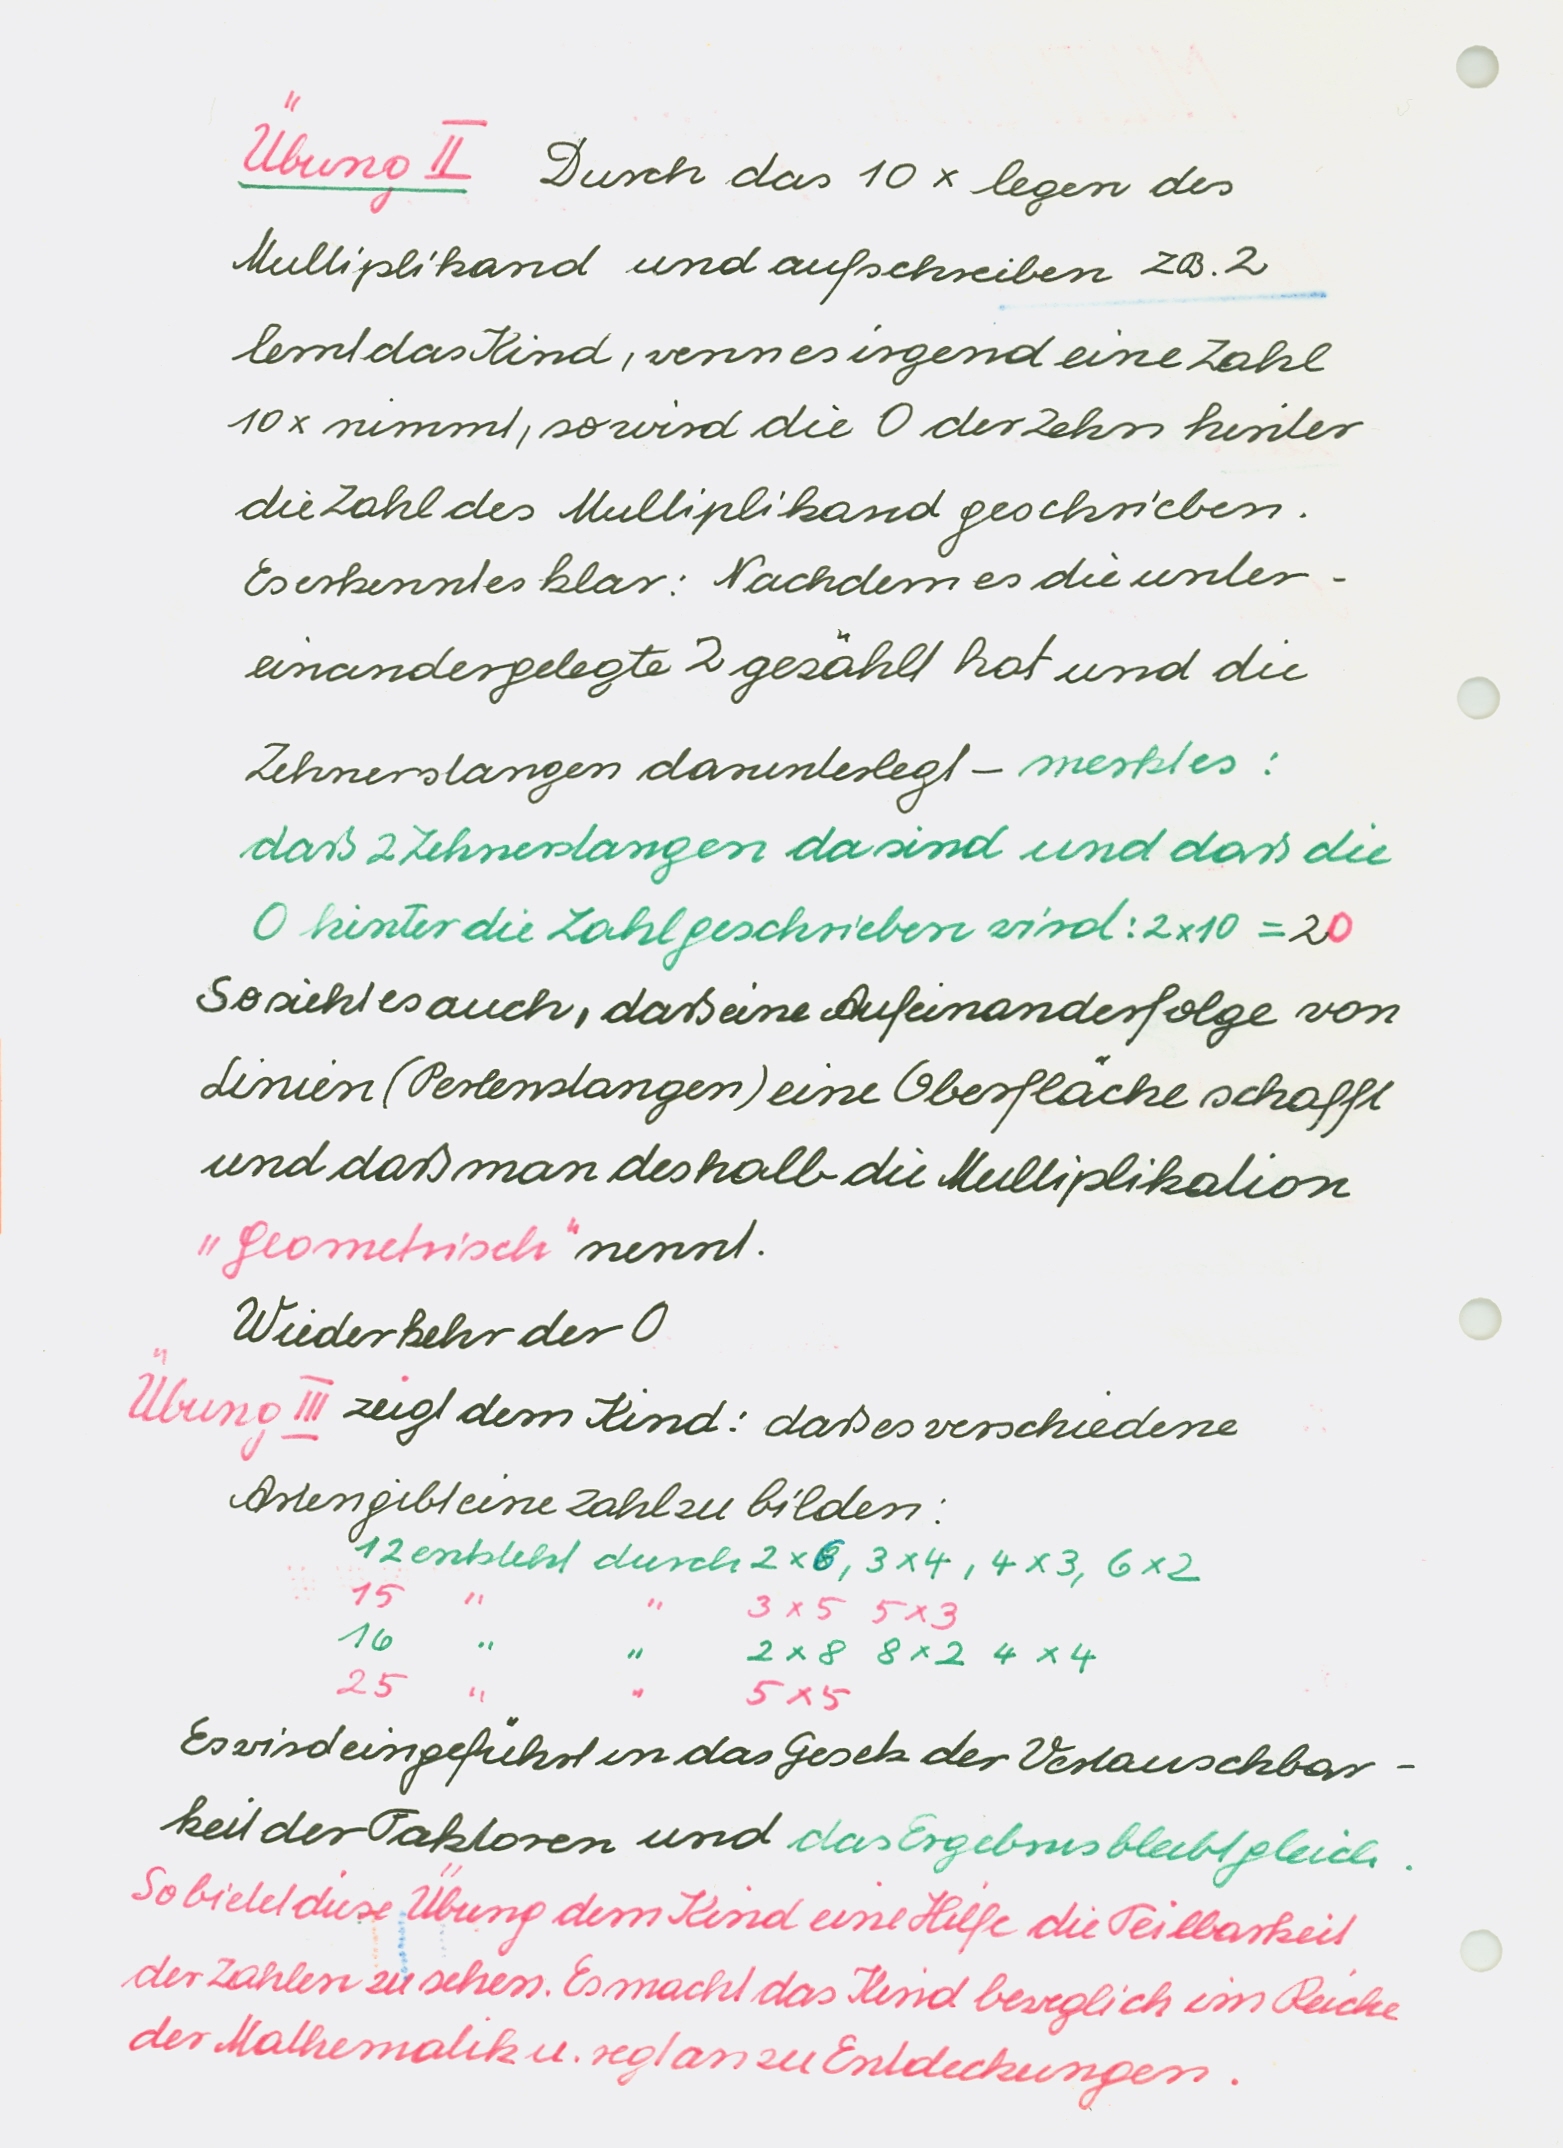 Übung II Durch das 10 x legen des
Multiplikand und aufschreiben z.B. 2
lernt das Kind, wenn es irgend eine Zahl
10x nimmt, so wird die 0 der Zehn hinter
die Zahl des Multiplikand geschrieben.
Es erkennt es klar: Nachdem es die unter-
einandergelegte 2 gezählt hat und die
Zehnerstangen darunterlegt – merkt es:
daß 2 Zehnerstangen da sind und daß die
0 hinter die Zahl geschrieben wird: 2x10 = 20
So sieht es auch, daß eine Aufeinanderfolge von
Linien (Perlenstangen) eine Oberfläche schafft
und daß man deshalb die Multiplikation
„Geometrisch" nennt.
Wiederkehr der 0
Übung III zeigt dem Kind: daß es verschiedene
Arten gibt eine Zahl zu bilden:
12 entsteht durch 2x6, 3x4, 4x3, 6x2
15 " " 3x5 5x3
16 " " 2x8 8x2 4x4
25 " " 5x5
Es wird eingeführt in das Gesetz der Vertauschbar-
keit der Faktoren und das Ergebnis bleibt gleich.
So bietet diese Übung dem Kind eine Hilfe die Teilbarkeit
der Zahlen zu sehen. Es macht das Kind beweglich im Reiche
der Mathematik u. regt an zu Entdeckungen.